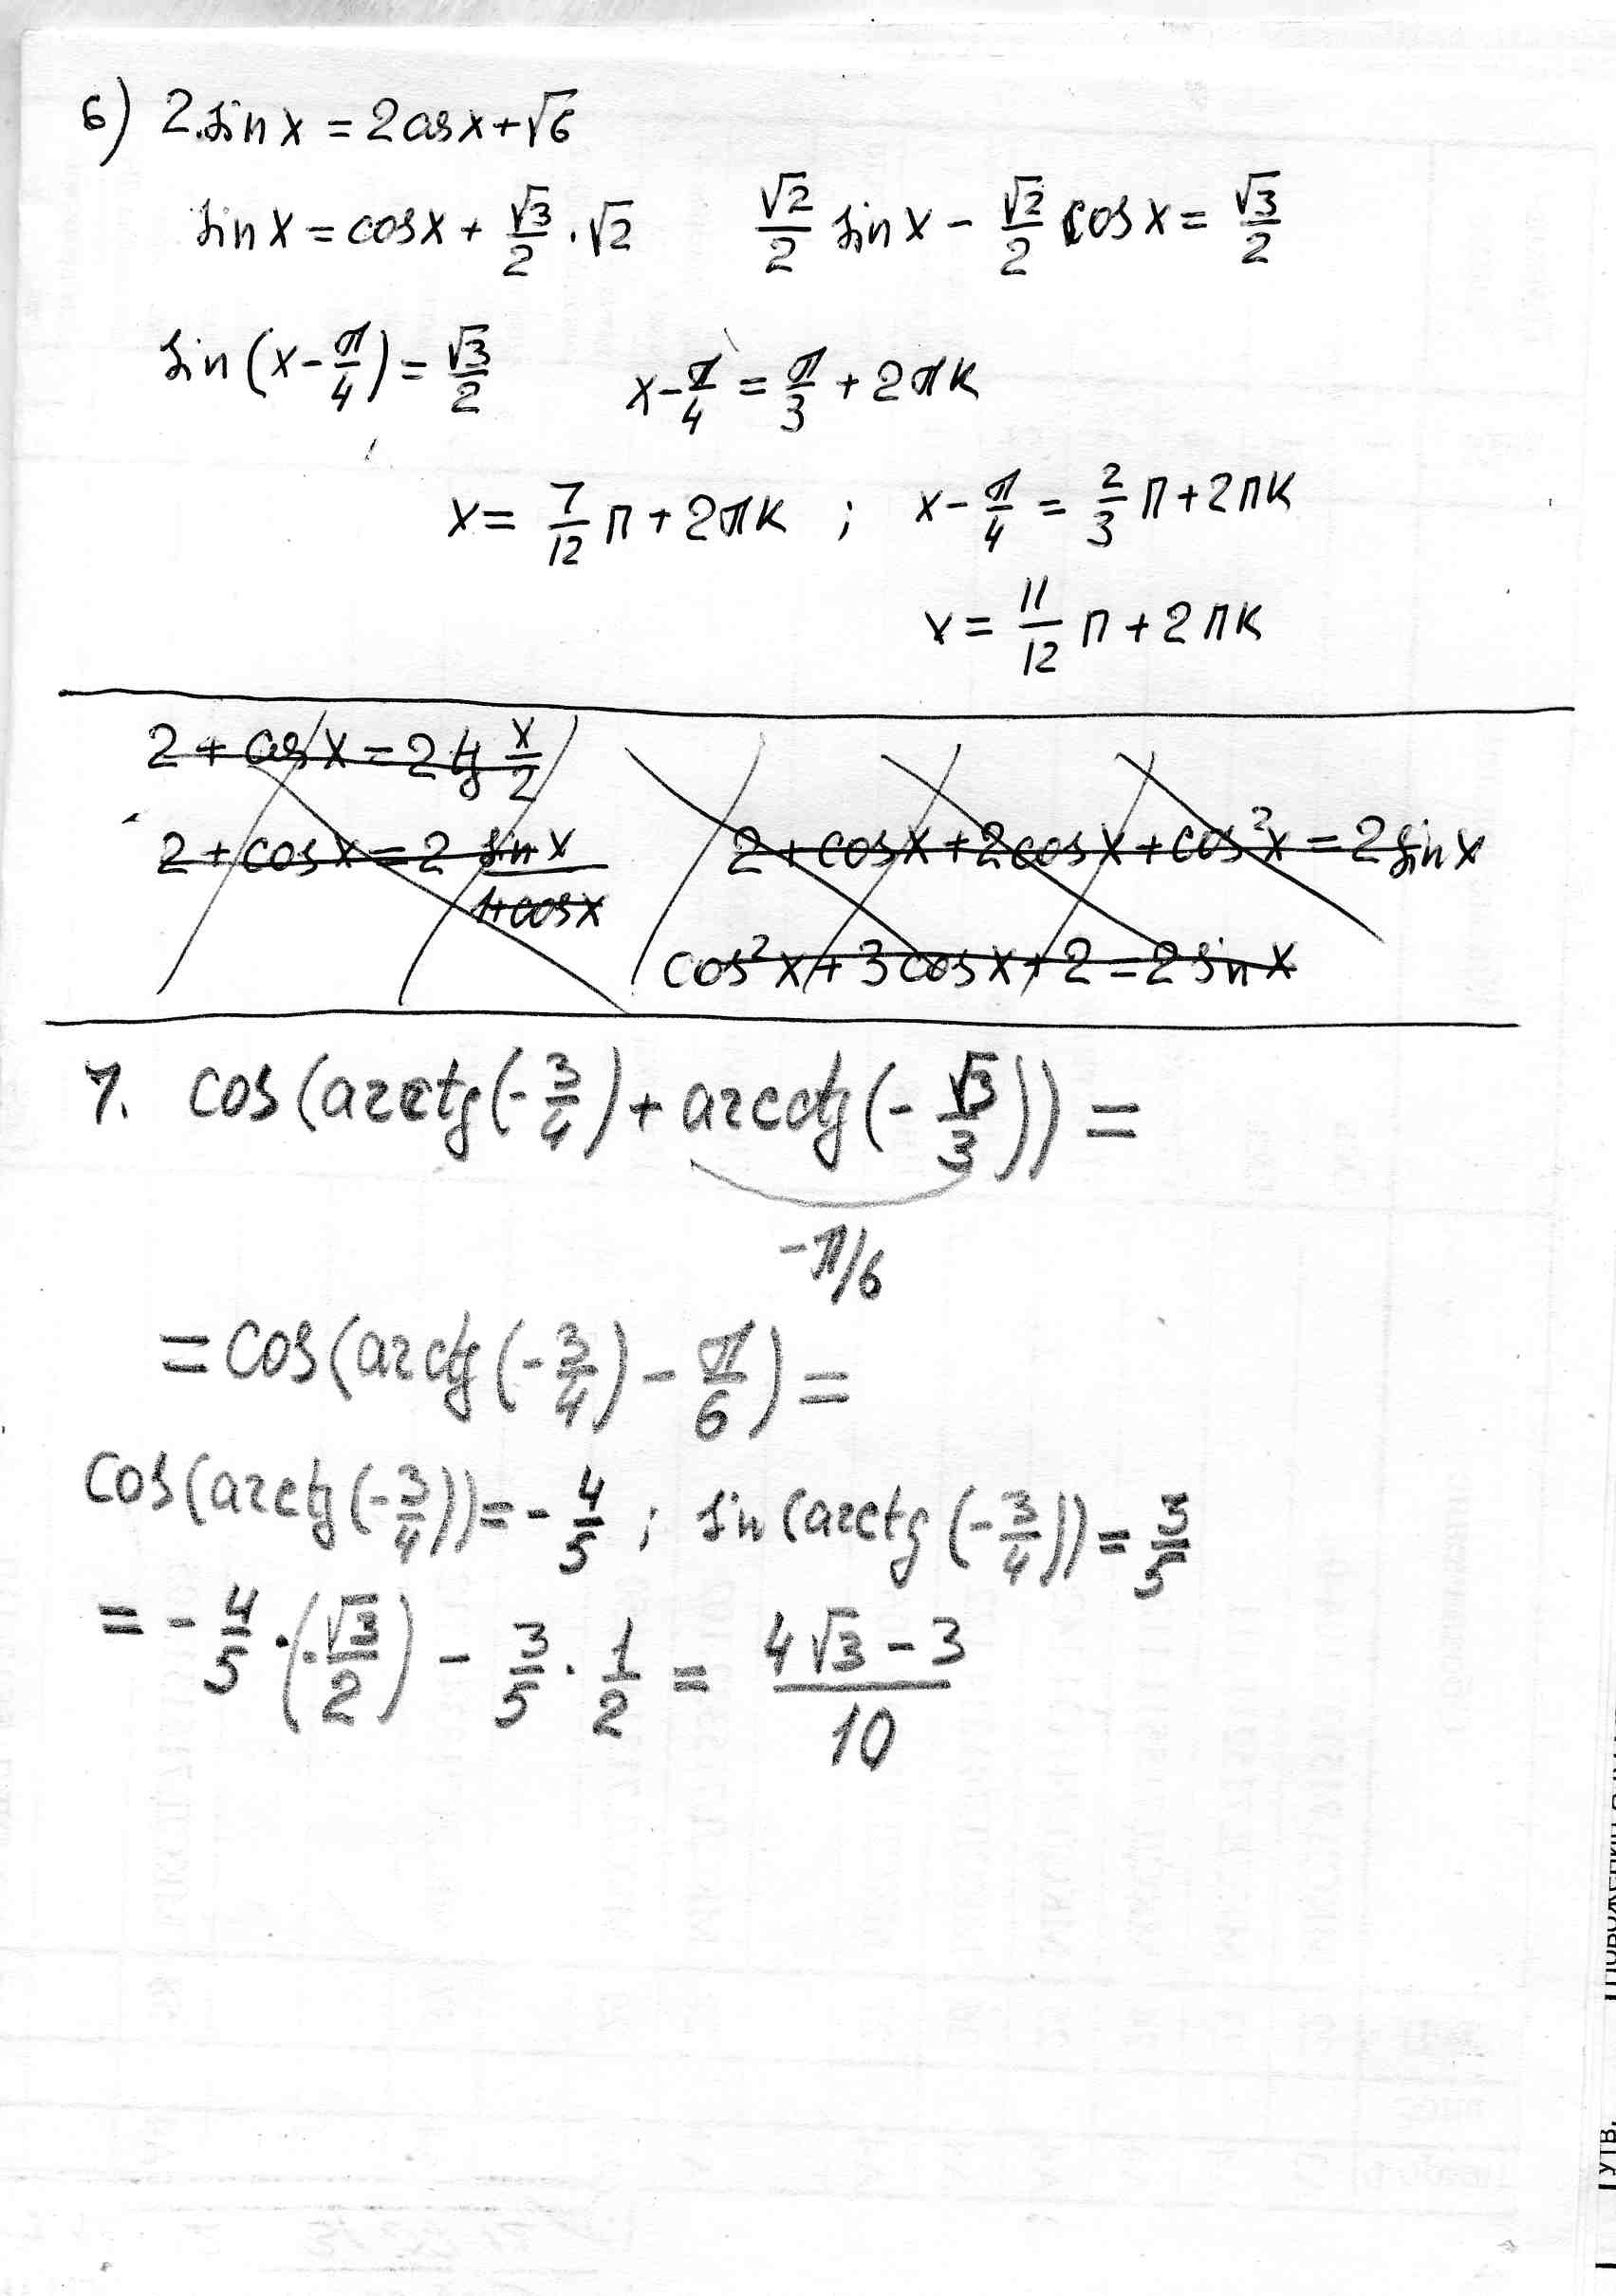 6) 2 sin x = 2 cos x + √6
sin x = cos x + √3/2 · √2   √2/2 sin x - √2/2 cos x = √3/2
sin (x - π/4) = √3/2   x - π/4 = π/3 + 2πk
x = 7/12 π + 2πk ; x - π/4 = 2/3 π + 2πk
x = 11/12 π + 2πk
2 + cos x = 2 tg x/2
2 + cos x = 2 sin x/(1+cos x)   2 + cos x + 2 cos x + cos² x = 2 sin x
cos² x + 3 cos x + 2 = 2 sin x
7. cos (arctg (-3/4) + arcctg (-√3/3)) =
-π/6
= cos (arctg (-3/4) - π/6) =
cos (arctg (-3/4)) = -4/5 ; sin (arctg (-3/4)) = 3/5
= -4/5 · (-√3/2) - 3/5 · 1/2 = (4√3 - 3)/10